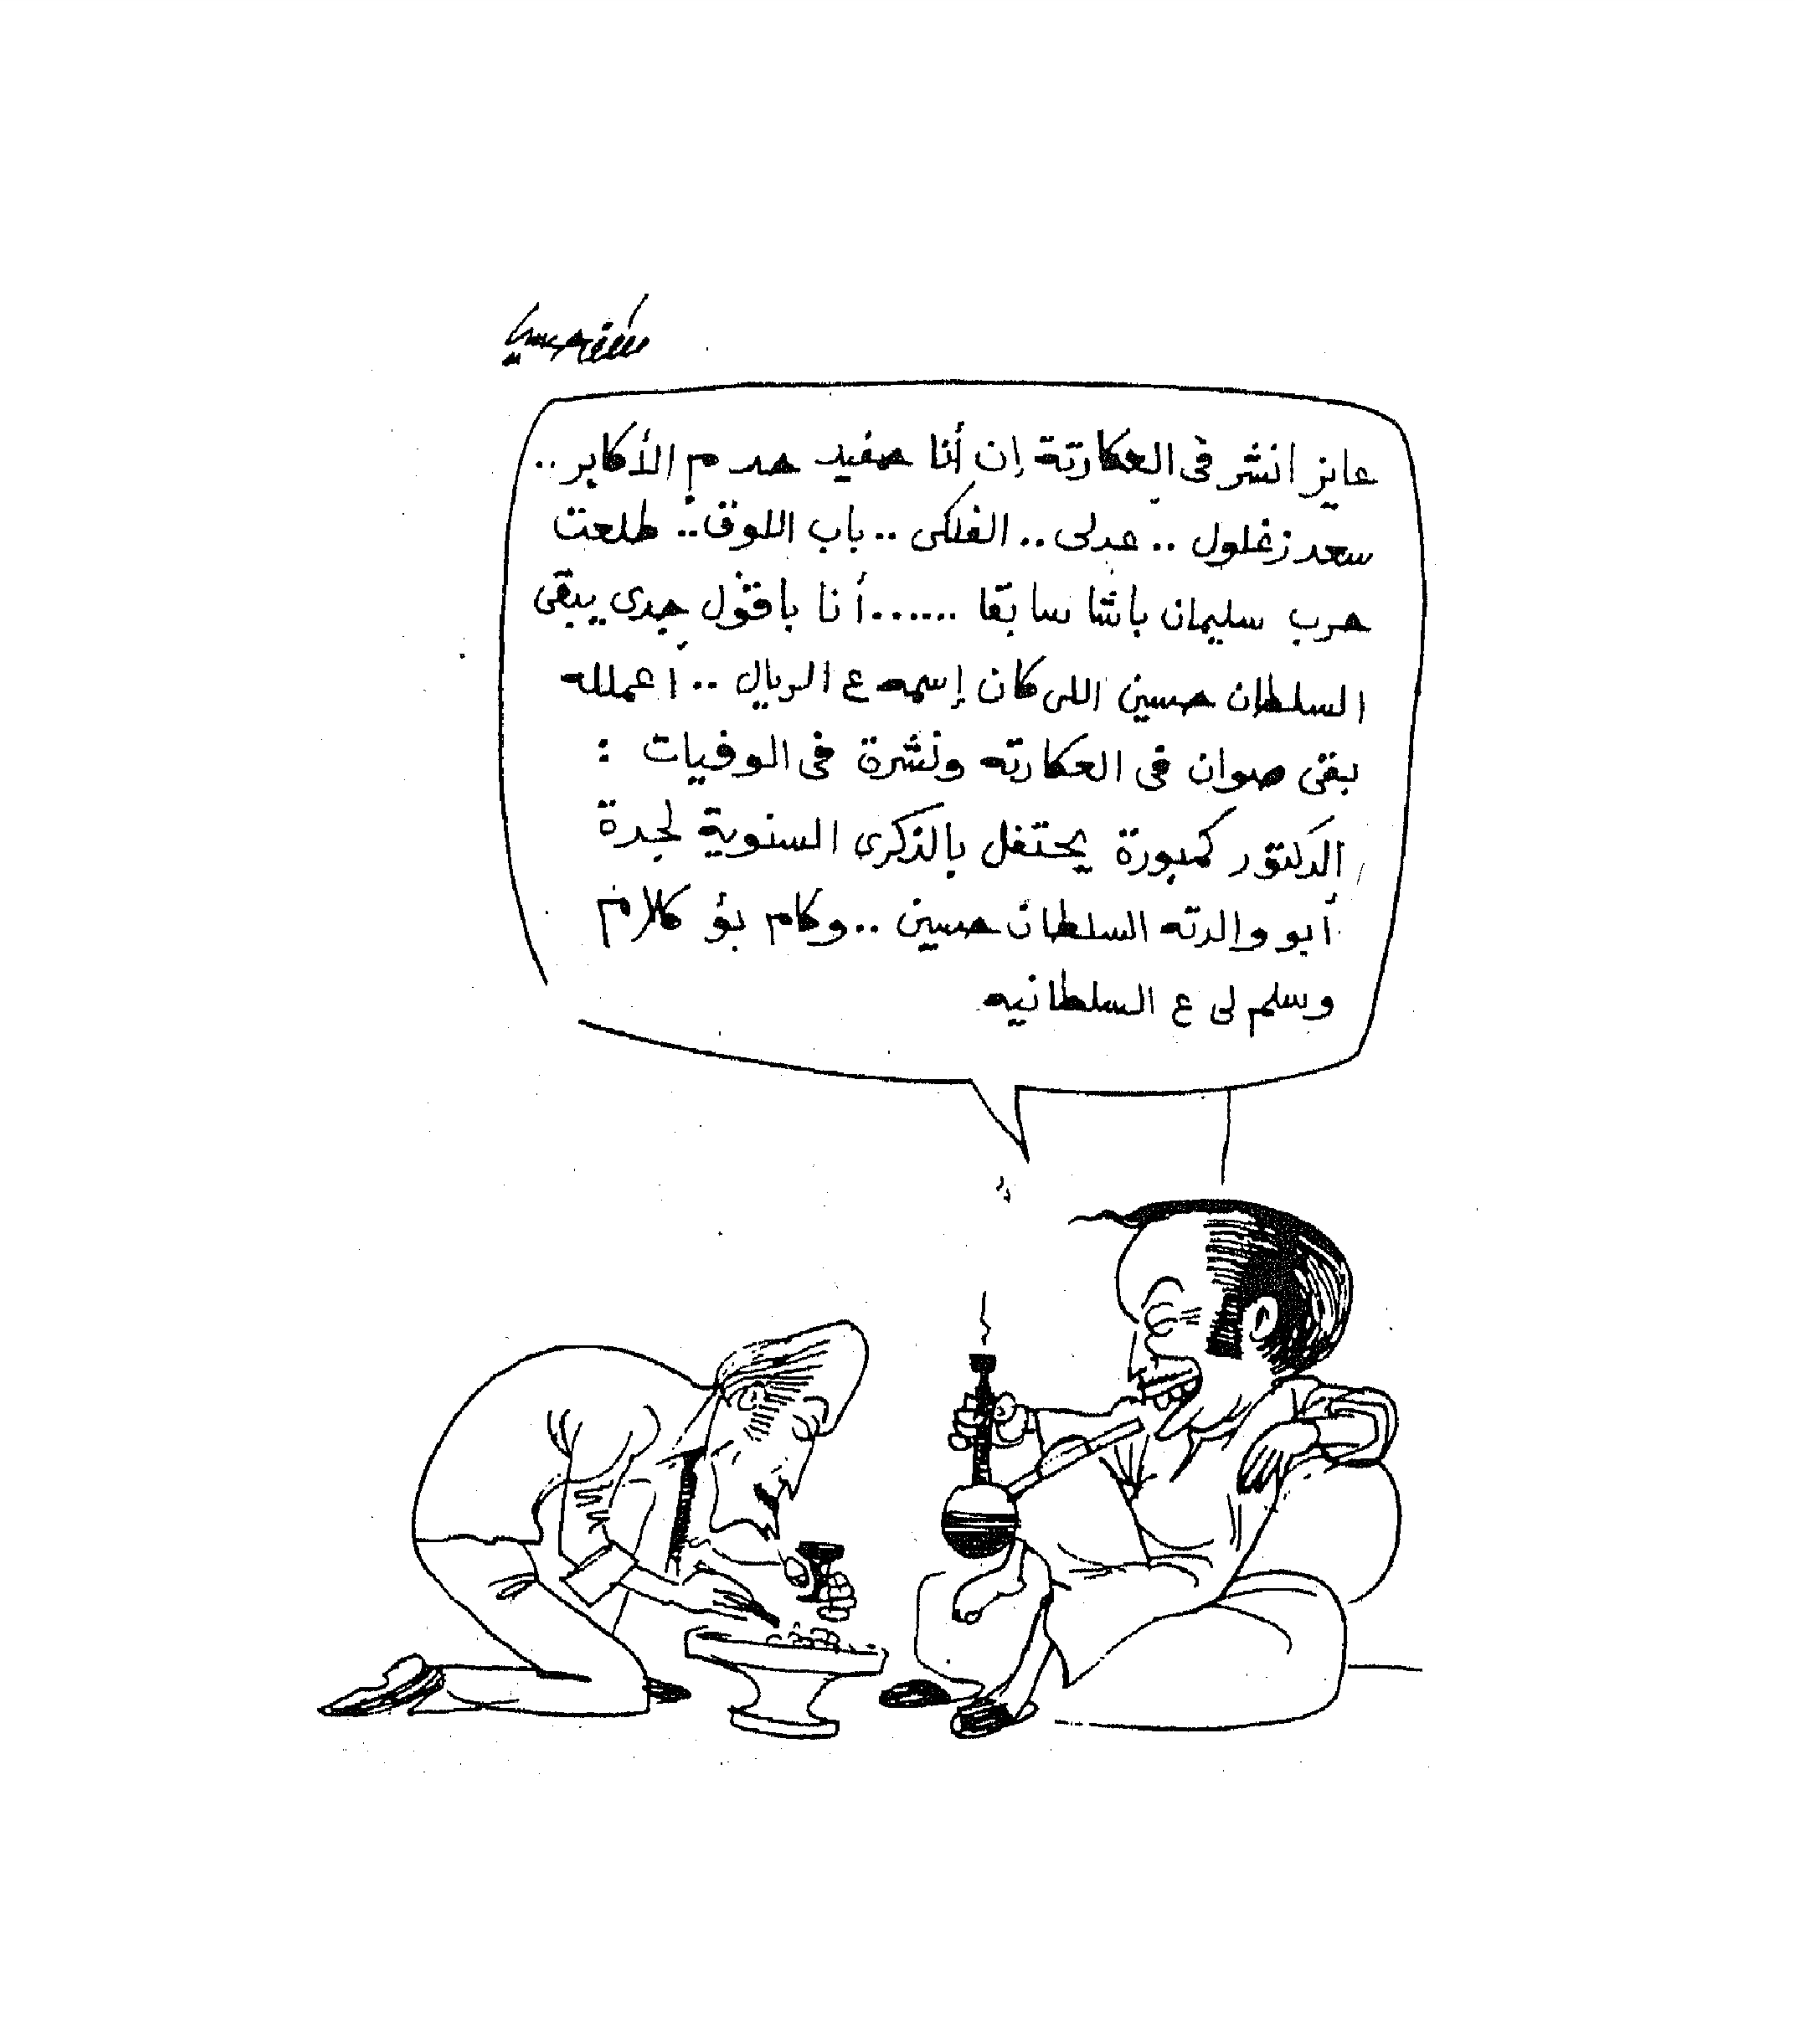 مصطفى حسين
عايز انشر فى العكارتة إن أنا حفيد حد م الأكابر ..
سعد زغلول .. عدلى .. الفلكى .. باب اللوق .. طلعت
حرب سليمان باشا سابقا ...... أنا باقول جدى يبقى
السلطان حسين اللى كان إسمه ع الريال .. اعملله
بقى صوان فى العكارته ونشرة فى الوفيات :
الدكتور كمبورة يحتفل بالذكرى السنوية لجدة
أبو والدته السلطان حسين .. وكام بؤ كلام
وسلم لى ع السلطانيه